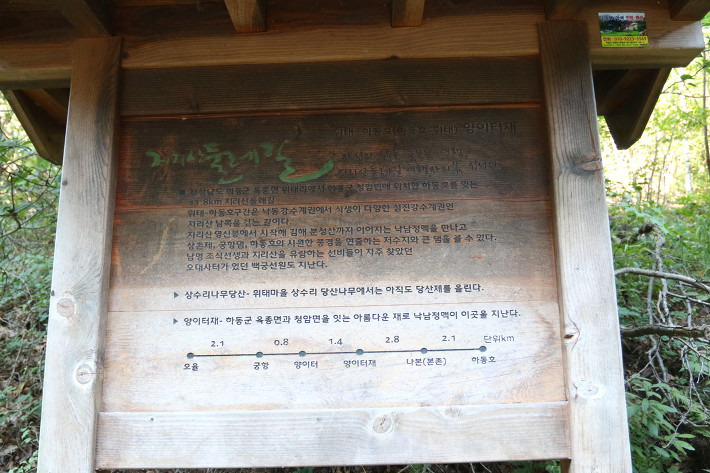 위태-하동호(하동호-위태) 양이터재
지리산둘레길
경상남도 하동군 옥종면 위태리에서 하동군 청암면에 위치한 하동호를 잇는
11.8km 지리산둘레길
위태-하동호구간은 낙동강수계권에서 식생이 다양한 섬진강수계권인
지리산 남쪽을 걷는 길이다.
지리산 영신봉에서 시작해 김해 분성산까지 이어지는 낙남정맥을 만나고
상촌제, 궁항댐, 하동호의 시원한 풍경을 연출하는 저수지와 큰 댐들 볼 수 있다.
남명 조식선생과 지리산을 유람하는 선비들이 자주 찾았던
오대사터가 있던 백궁선원도 지난다.
▶ 상수리나무당산- 위태마을 상수리 당산나무에서는 아직도 당산제를 올린다.
▶ 양이터재- 하동군 옥종면과 청암면을 잇는 아름다운 재로 낙남정맥이 이곳을 지난다.
2.1 0.8 1.4 2.8 2.1 단위km
오율 궁항 양이터 양이터재 나본(본촌) 하동호